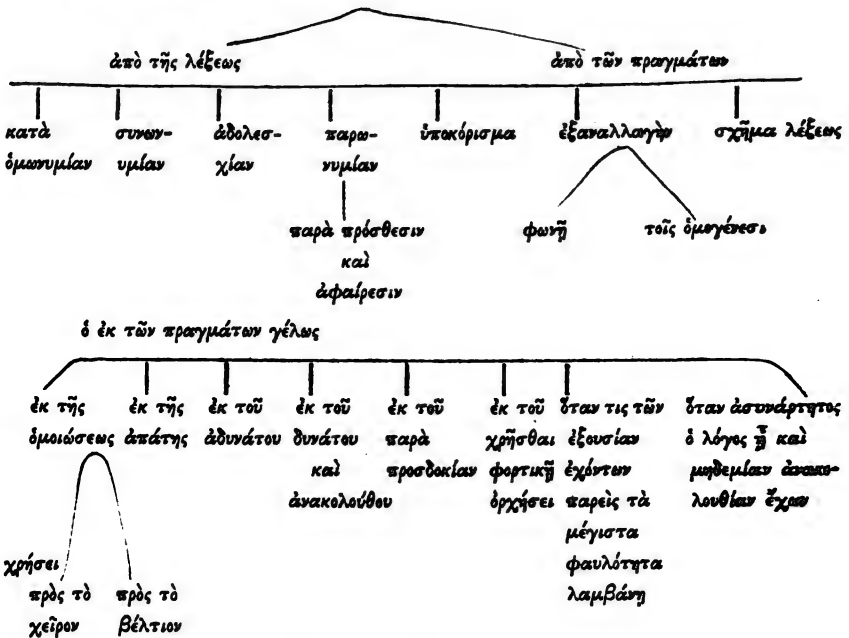 ἀπὸ τῆς λέξεως ἀπὸ τῶν πραγμάτων
κατὰ ὁμωνυμίαν
συνων-
υμίαν
ἀδολεσ-
χίαν
παρω-
νυμίαν
ὑποκόρισμα
ἐξαναλλαγὴν
σχῆμα λέξεως
παρὰ πρόσθεσιν
καὶ
ἀφαίρεσιν
φωνῇ
τοῖς ὁμογένεσι
ὁ ἐκ τῶν πραγμάτων γέλως
ἐκ τῆς
ὁμοιώσεως
χρήσει
πρὸς τὸ
χεῖρον
πρὸς τὸ
βέλτιον
ἐκ τῆς
ἀπάτης
ἐκ τοῦ
ἀδυνάτου
ἐκ τοῦ
δυνάτου
καὶ
ἀνακολούθου
ἐκ τοῦ
παρὰ
προσδοκίαν
ἐκ τοῦ
χρῆσθαι
φορτικῇ
ὀρχήσει
ὅταν τις τῶν
ἐξουσίαν
ἐχόντων
παρεὶς τὰ
μέγιστα
φαυλότητα
λαμβάνῃ
ὅταν ἀσυνάρτητος
ὁ λόγος ᾖ καὶ
μηδεμίαν ἀνακο-
λουθίαν ἔχων